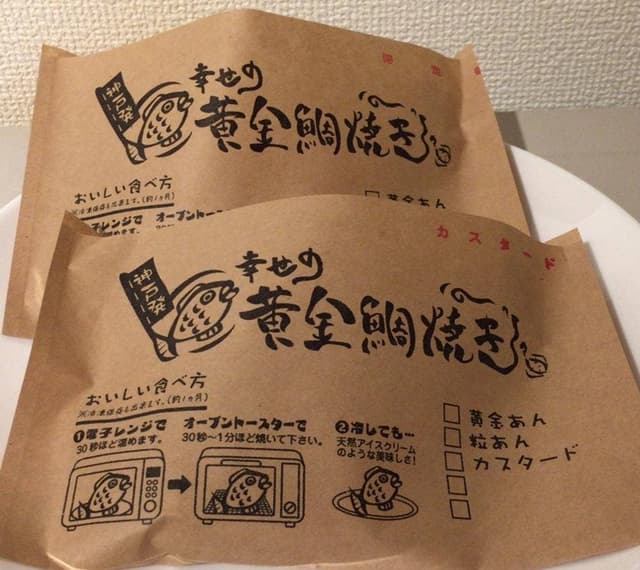 神戸発
幸せの
黄金鯛焼き
おいしい食べ方
※冷凍保存も出来ます。(約1ヵ月)
黄金あん
カスタード
神戸発
幸せの
黄金鯛焼き
おいしい食べ方
※冷凍保存も出来ます。(約1ヵ月)
❶電子レンジで
30秒ほど温めます。
オーブントースターで
30秒〜1分ほど焼いて下さい。
❷冷しても…
天然アイスクリーム
のような美味しさ!
黄金あん
粒あん
カスタード